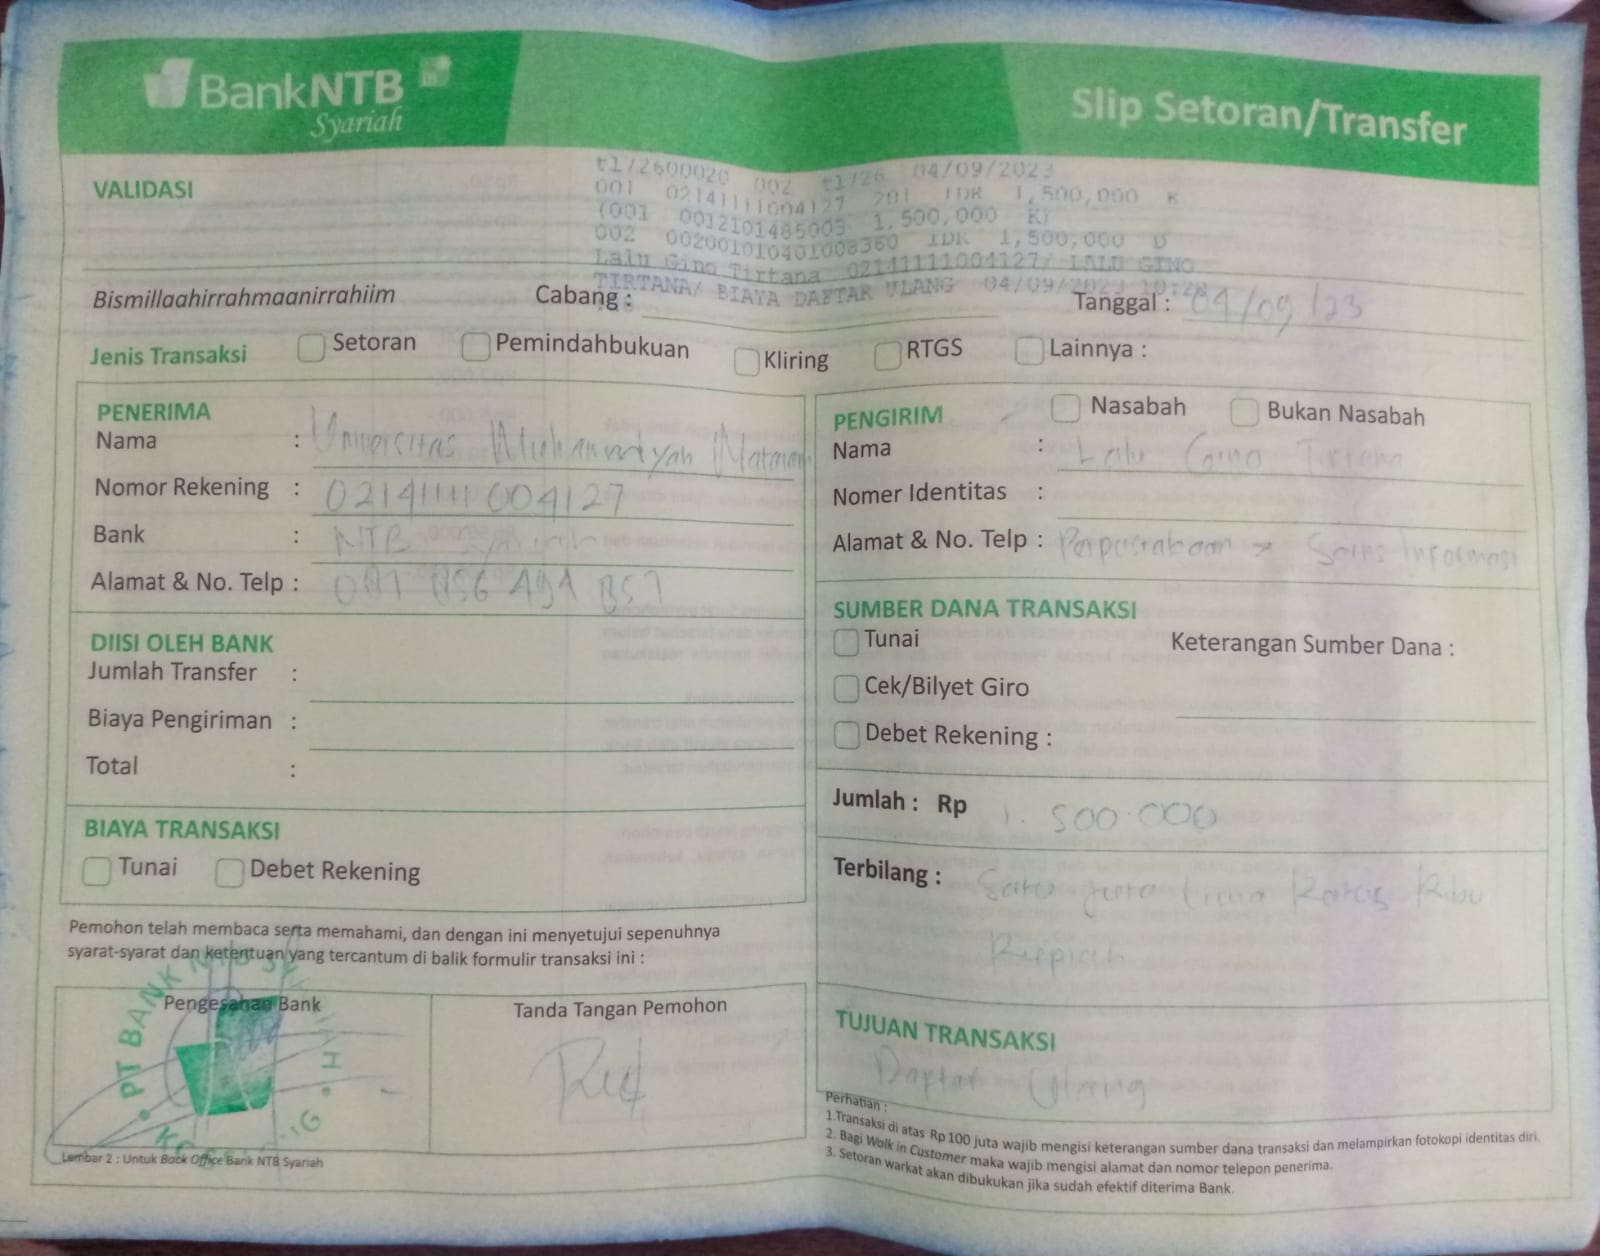 BankNTB
Syariah
Slip Setoran/Transfer
VALIDASI
t1/2600020 002 t1/26 04/09/2023
001 02141111004127 201 IDR 1,500,000 K
(001 0012101485003 1,500,000 K)
002 002001010401008360 IDR 1,500,000 D
Lalu Gino Tirtana 02141111004127/ LALU GINO
TIRTANA/ BIAYA DAFTAR ULANG 04/09/2023
Bismillaahirrahmaanirrahiim
Cabang :
Tanggal : 04/09/23
Jenis Transaksi Setoran Pemindahbukuan Kliring RTGS Lainnya :
PENERIMA
Nama : Universitas Muhammadyah Mataram
Nomor Rekening : 02141111004127
Bank : NTB Syariah
Alamat & No. Telp :
DIISI OLEH BANK
Jumlah Transfer :
Biaya Pengiriman :
Total :
BIAYA TRANSAKSI
Tunai Debet Rekening
Pemohon telah membaca serta memahami, dan dengan ini menyetujui sepenuhnya
syarat-syarat dan ketentuan yang tercantum di balik formulir transaksi ini :
Pengesahan Bank
PT BANK NTB SYARIAH
Tanda Tangan Pemohon
Lembar 2 : Untuk Back Office Bank NTB Syariah
PENGIRIM Nasabah Bukan Nasabah
Nama : Lalu Gino Tirtana
Nomer Identitas :
Alamat & No. Telp : Perpustakaan Sains Informasi
SUMBER DANA TRANSAKSI
Tunai
Keterangan Sumber Dana :
Cek/Bilyet Giro
Debet Rekening :
Jumlah : Rp 1.500.000
Terbilang : Satu juta lima Ratus Ribu
Rupiah
TUJUAN TRANSAKSI
Daftar Ulang
Perhatian :
1.Transaksi di atas Rp100 juta wajib mengisi keterangan sumber dana transaksi dan melampirkan fotokopi identitas diri.
2. Bagi Walk in Customer maka wajib mengisi alamat dan nomor telepon penerima.
3. Setoran warkat akan dibukukan jika sudah efektif diterima Bank.